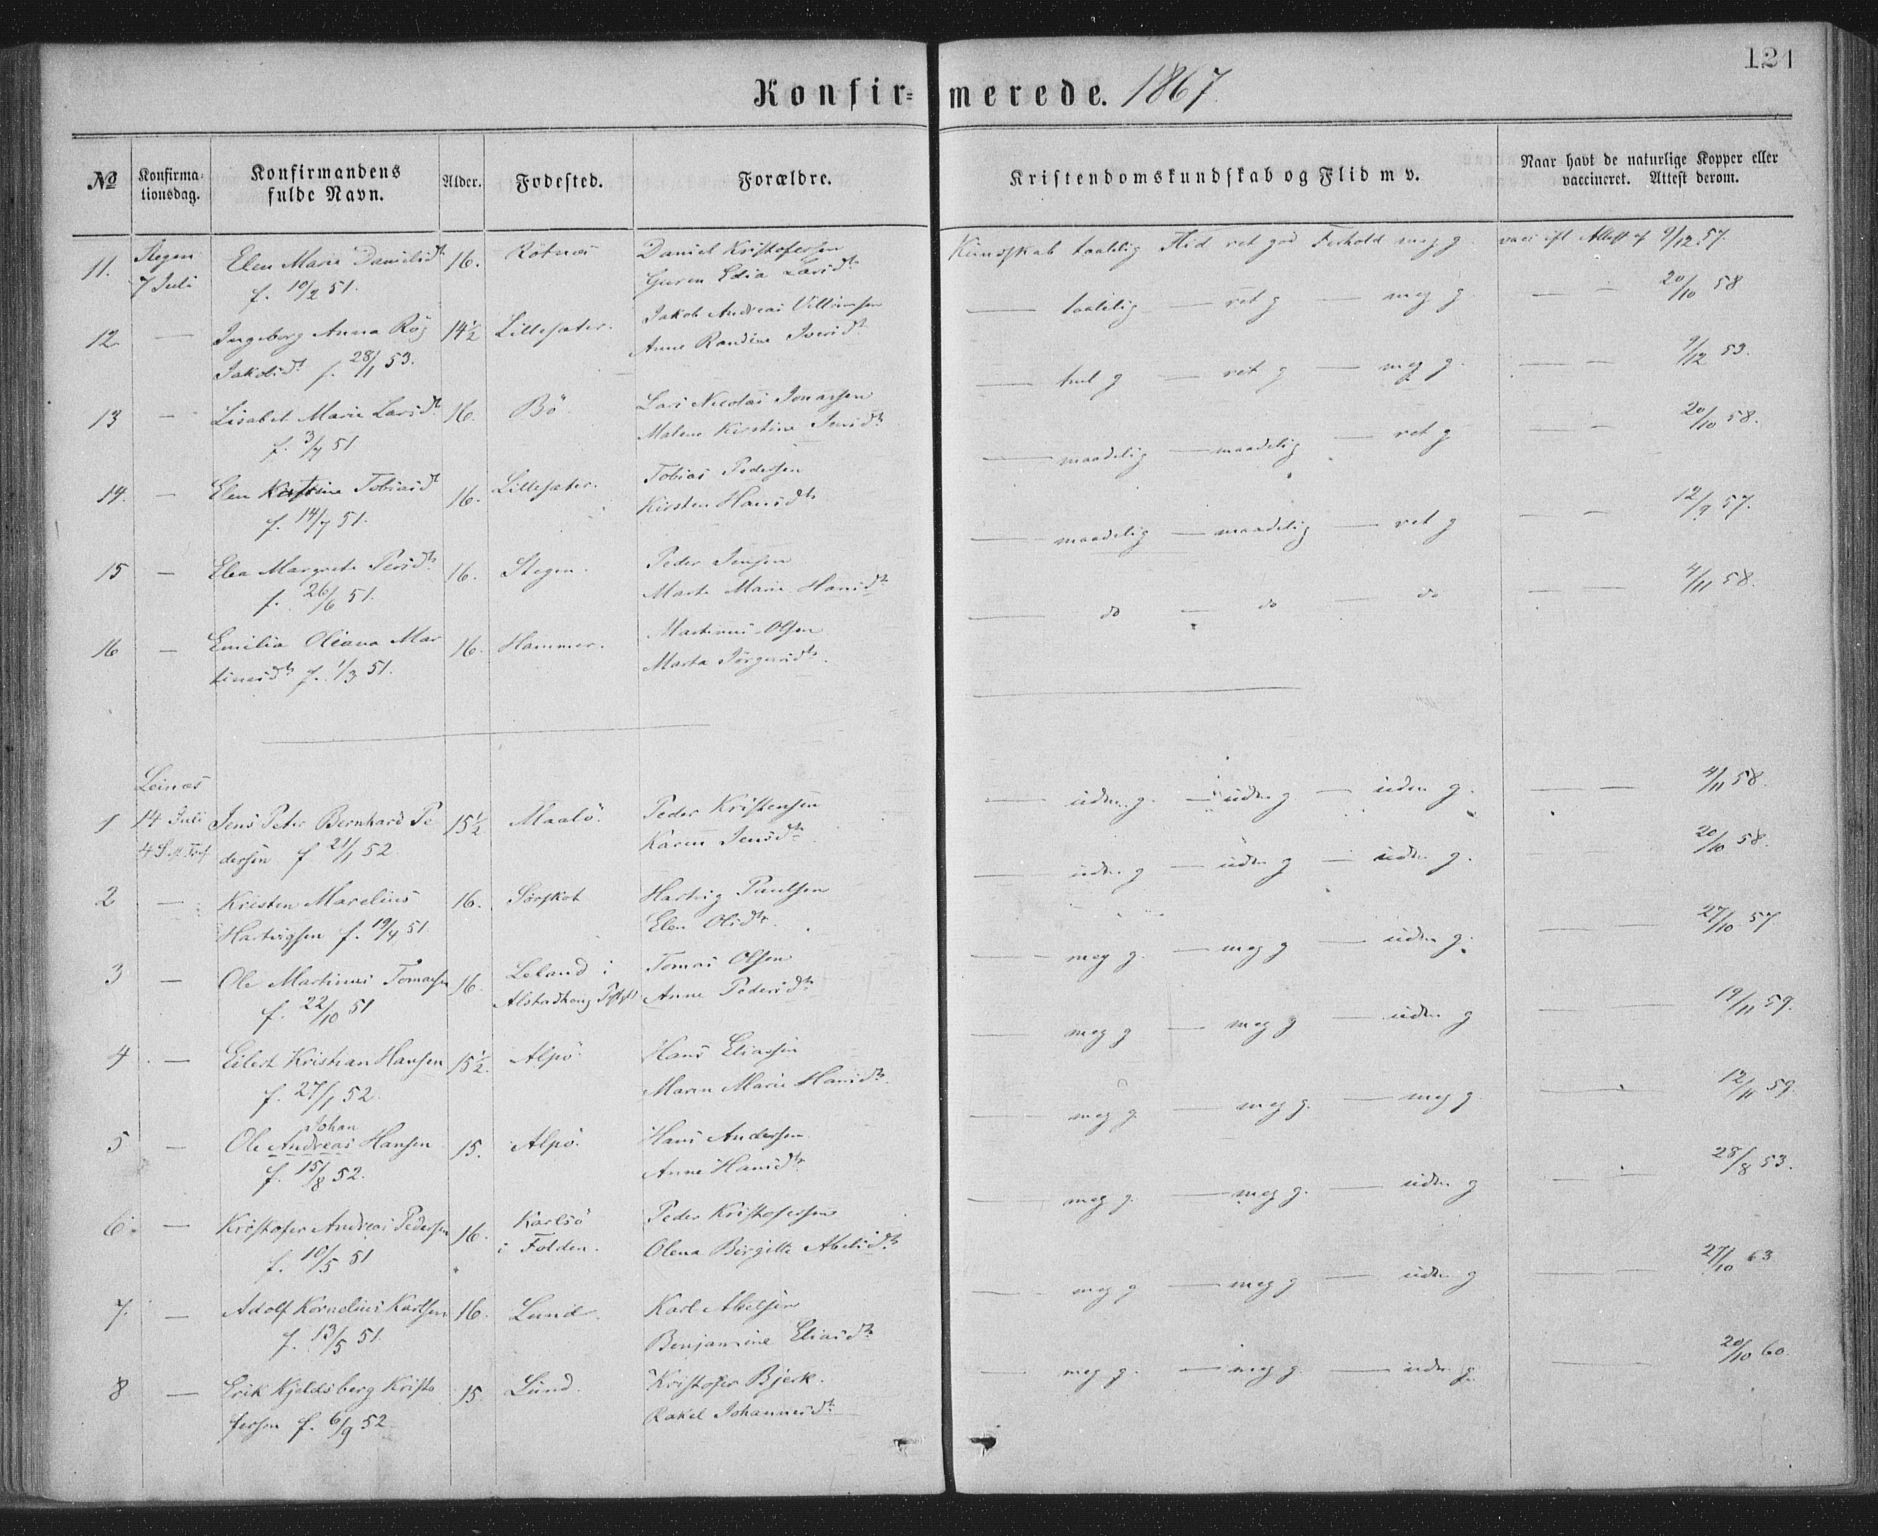 121
Konfir=merede. 1867.
№ Konfirmationsdag. Konfirmandens fulde Navn. Alder. Fodested. Forældre. Kristendomskundskab og Flid m v. Naar havt de naturlige Kopper eller vaccineret. Attest derom.
11. Stegen Elen Marie Danielsdt 16. Rötnæs Daniel Kristofersen Kundskab taalelig Flid ret god Forhold meg g vacc ifl Attest af 9/12 57
7 Juli f. 10/2 51. Guren Edia Larsdt
12. — Ingeborg Anna Röz 14½ Lillesæter. Jakob Andreas Villumsen — taalelig — ret g — meg g. — — 20/10 58
Jakobsdt f. 28/1 53. Anne Randine Iversdt
13 — Lisabet Marie Larsdt 16. Bö Lars Nicolai Jonassen — tml g — ret g — meg g. — — 9/12 53.
f. 3/7 51 Malene Kirstine Jensdt
14. — Elen Kirstine Tobiasdt 16. Lillesæter. Tobias Pedersen — maadelig — maadelig — ret g — — 20/10 58.
f. 14/7 51. Kirsten Hansdt
15 — Elea Margrete Persdt 16. Stegen. Peder Jensen — maadelig — maadelig — ret g — — 12/9 57.
f. 26/6 51. Marte Marie Hansdt
16 — Emilia Oliana Mar 16. Hammer. Martinus Olsen — do — do — do — — 4/11 58.
tinusdt f. 1/3 51. Marta Jörgensdt
Leines
1 14 Juli Jens Peter Bernhard Pe 15½ Maalö. Peder Kristensen — uden g. — uden g — uden g. — — 4/11 58.
4 S. f. Tref dersen f 21/1 52. Karen Jensdt
2 — Kristen Marelius 16. Sörskot Hartvig Paulsen — uden g — uden g — uden g. — — 20/10 58.
Hartvigsen f. 19/4 51 Elen Olsdt
3 — Ole Martinus Tomassen 16. Leland i Tomas Olsen — meg g. — meg g — uden g. — — 27/10 57.
f. 22/10 51 Alstadhoug Pstgld Anne Pedersdt
4 — Eilert Kristian Hansen 15½. Alpö. Hans Eliassen — meg g — meg g — uden g — — 19/11 59.
f. 27/1 52. Maren Marie Hansdt
Johan
5 — Ole Andreas Hansen 15. Alpö. Hans Andersen — meg g. — meg g. — meg g. — — 12/11 59.
f. 15/8 52. Anne Hansdt
6. — Kristofer Andreas Pedersen 16. Karlsö Peder Kristofersen — meg g. — meg g. — uden g — — 28/8 53.
f. 10/5 51 i Folden. Olena Birgitte Abelsdt
7. — Adolf Kornelius Karlsen 16. Lund. Karl Abelsen — meg g — meg g — uden g — — 27/10 63
f. 13/5 51. Benjamine Eliasdt
8 — Erik Kjeldsberg Kristo 15. Lund. Kristofer Bjerk. — meg g. — meg g. — uden g. — — 20/10 60.
fersen f. 6/9 52. Rakel Johannesdt